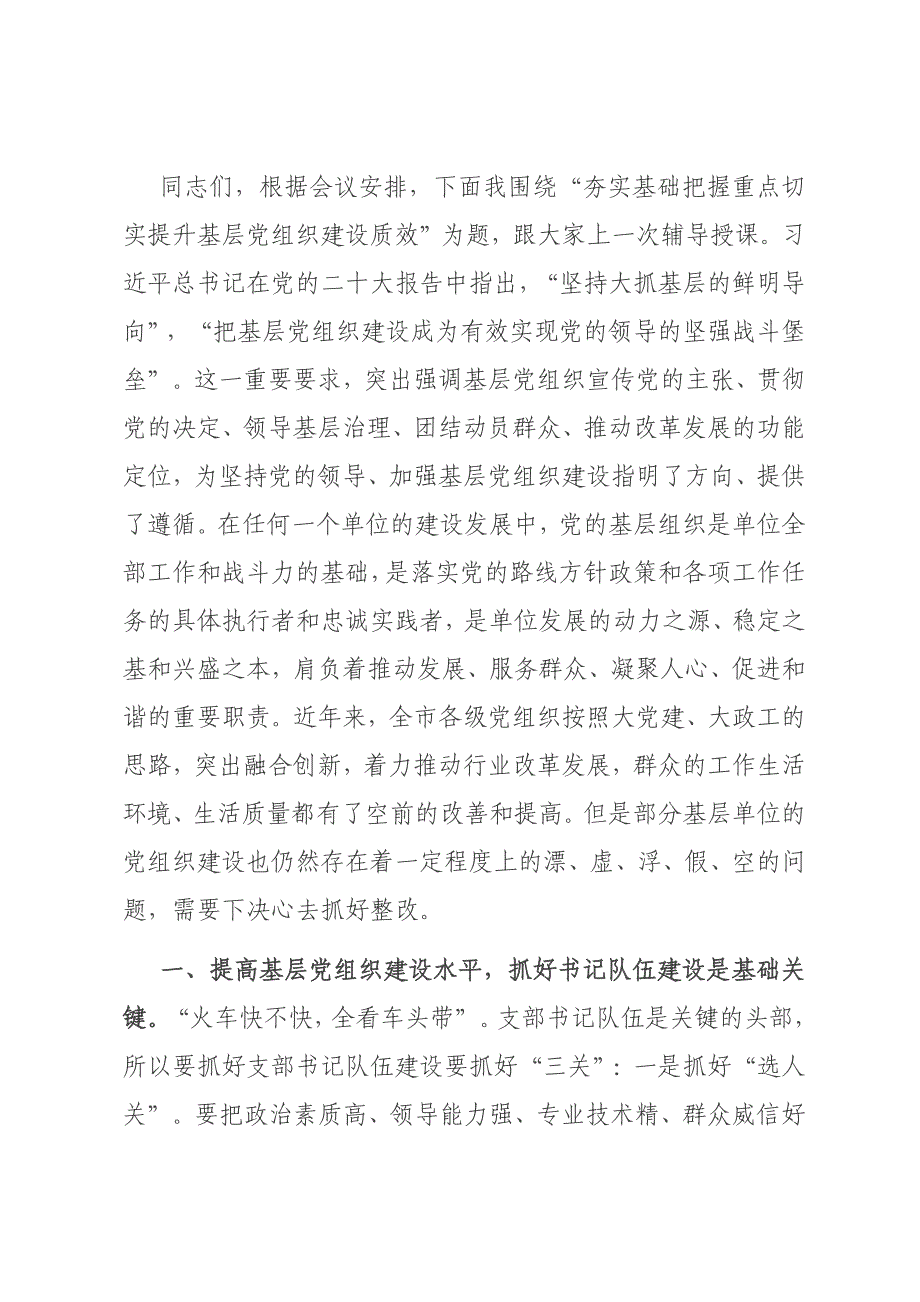 同志们，根据会议安排，下面我围绕“夯实基础把握重点切
实提升基层党组织建设质效”为题，跟大家上一次辅导授课。习
近平总书记在党的二十大报告中指出，“坚持大抓基层的鲜明导
向”，“把基层党组织建设成为有效实现党的领导的坚强战斗堡
垒”。这一重要要求，突出强调基层党组织宣传党的主张、贯彻
党的决定、领导基层治理、团结动员群众、推动改革发展的功能
定位，为坚持党的领导、加强基层党组织建设指明了方向、提供
了遵循。在任何一个单位的建设发展中，党的基层组织是单位全
部工作和战斗力的基础，是落实党的路线方针政策和各项工作任
务的具体执行者和忠诚实践者，是单位发展的动力之源、稳定之
基和兴盛之本，肩负着推动发展、服务群众、凝聚人心、促进和
谐的重要职责。近年来，全市各级党组织按照大党建、大政工的
思路，突出融合创新，着力推动行业改革发展，群众的工作生活
环境、生活质量都有了空前的改善和提高。但是部分基层单位的
党组织建设也仍然存在着一定程度上的漂、虚、浮、假、空的问
题，需要下决心去抓好整改。
一、提高基层党组织建设水平，抓好书记队伍建设是基础关
键。“火车快不快，全看车头带”。支部书记队伍是关键的头部，
所以要抓好支部书记队伍建设要抓好“三关”：一是抓好“选人
关”。要把政治素质高、领导能力强、专业技术精、群众威信好